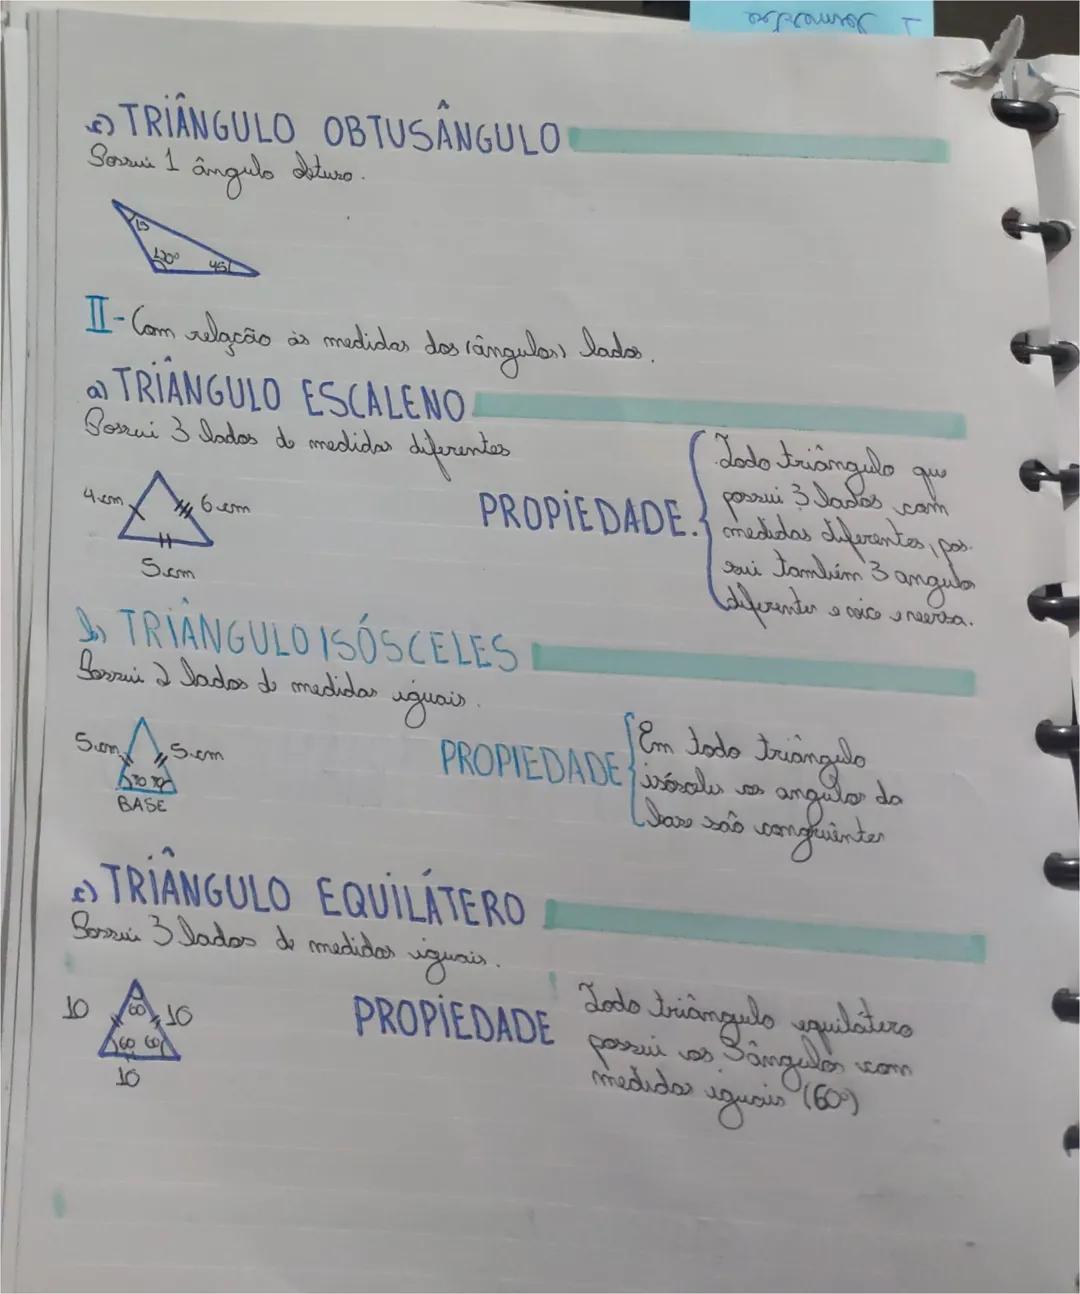 c) TRIÂNGULO OBTUSÂNGULO
Possui 1 ângulo obtuso.
15
120°
45
II - Com relação às medidas dos (ângulos) lados.
a) TRIÂNGULO ESCALENO
Possui 3 lados de medidas diferentes
4cm
6cm
5cm
PROPIEDADE.
Todo triângulo que
possui 3 lados com
medidas diferentes, pos-
sui também 3 angulos
diferentes e vice e versa.
b) TRIÂNGULO ISÓSCELES
Possui 2 lados de medidas iguais.
5cm
5cm
70 70
BASE
PROPIEDADE
Em todo triângulo
isósceles os angulos da
base são congruêntes
c) TRIÂNGULO EQUILÁTERO
Possui 3 lados de medidas iguais.
10
10
60
60 60
10
PROPIEDADE
Todo triângulo equilátero
possui os 3 ângulos com
medidas iguais (60°)